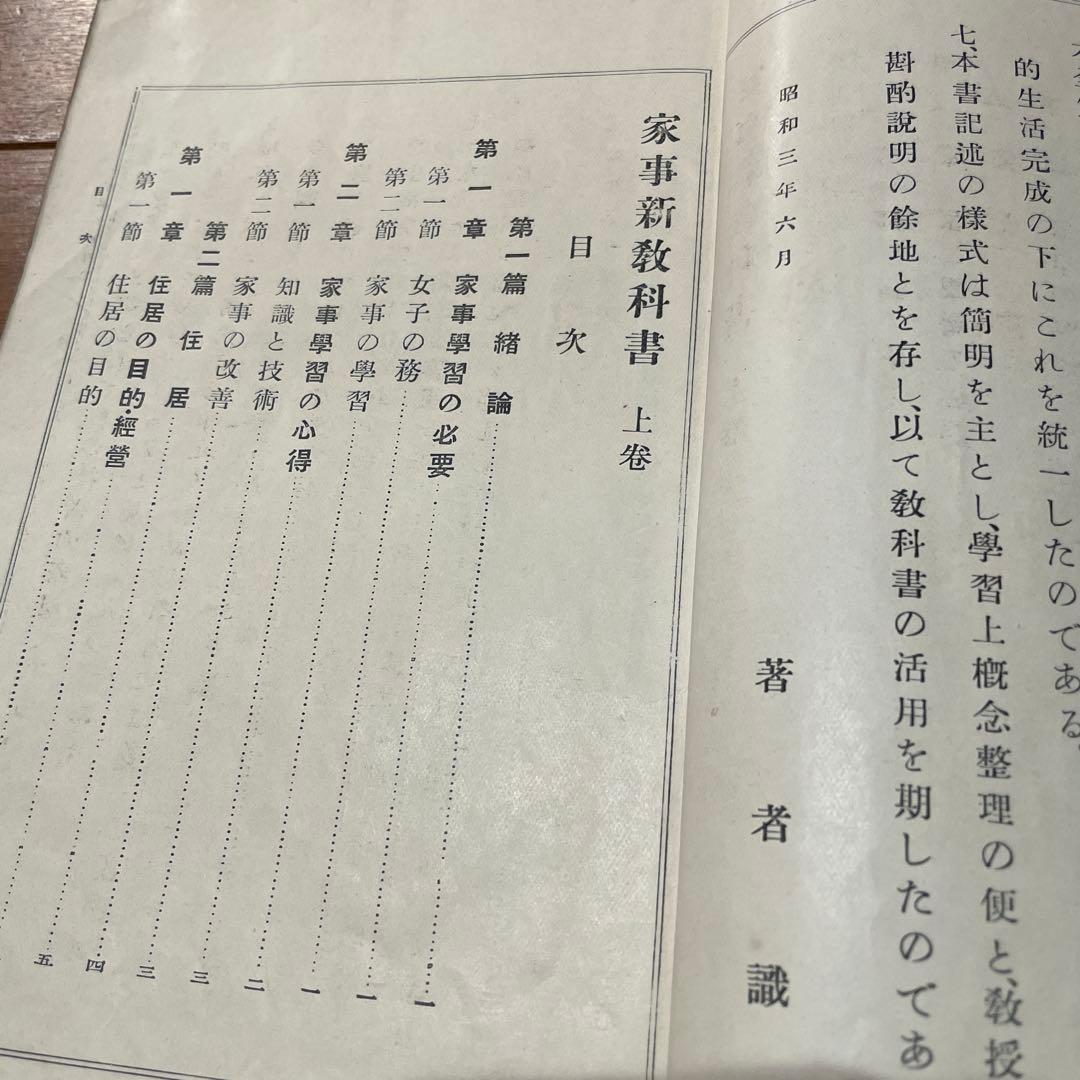 的生活完成の下にこれを統一したのである。
七、本書記述の様式は簡明を主とし、學習上槪念整理の便と、敎授
斟酌說明の餘地とを存し、以て敎科書の活用を期したのであ
昭和三年六月
著者識
家事新敎科書 上卷
目次
第一篇 緖論
第一章 家事學習の必要 一
第一節 女子の務 一
第二節 家事の學習 一
第二章 家事學習の心得 二
第一節 知識と技術 三
第二節 家事の改善 三
第二篇 住居 四
第一章 住居の目的・經營 五
第一節 住居の目的
目次